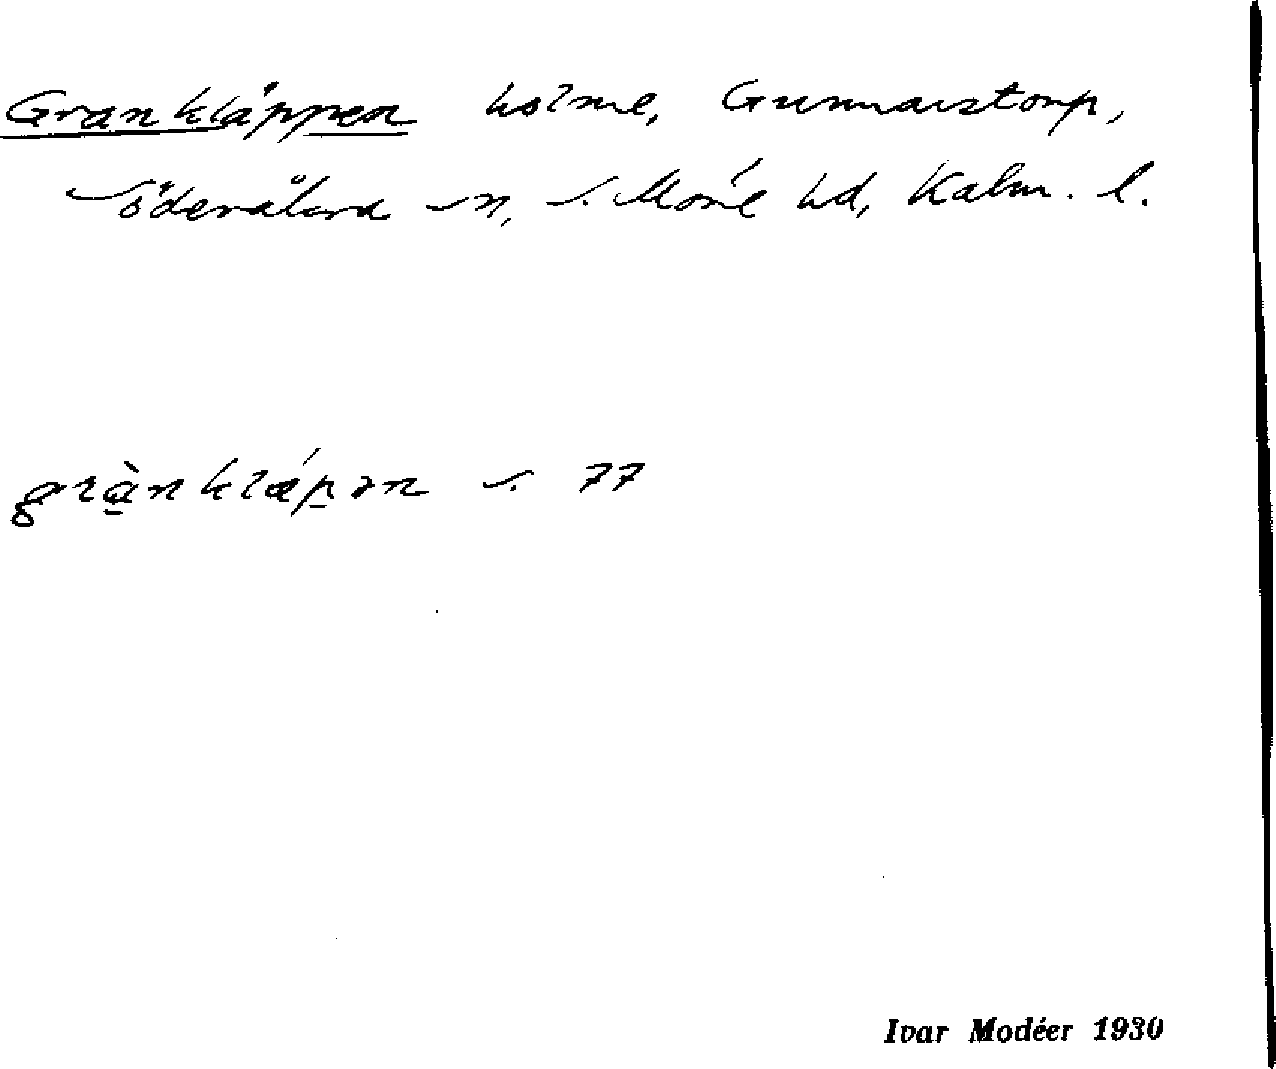 Grankläppen holme, Gunnarstorp,
Söderåkra sn, S. Möre hd, Kalm. l.
grànklǽpən s. 77
Ivar Modéer 1930